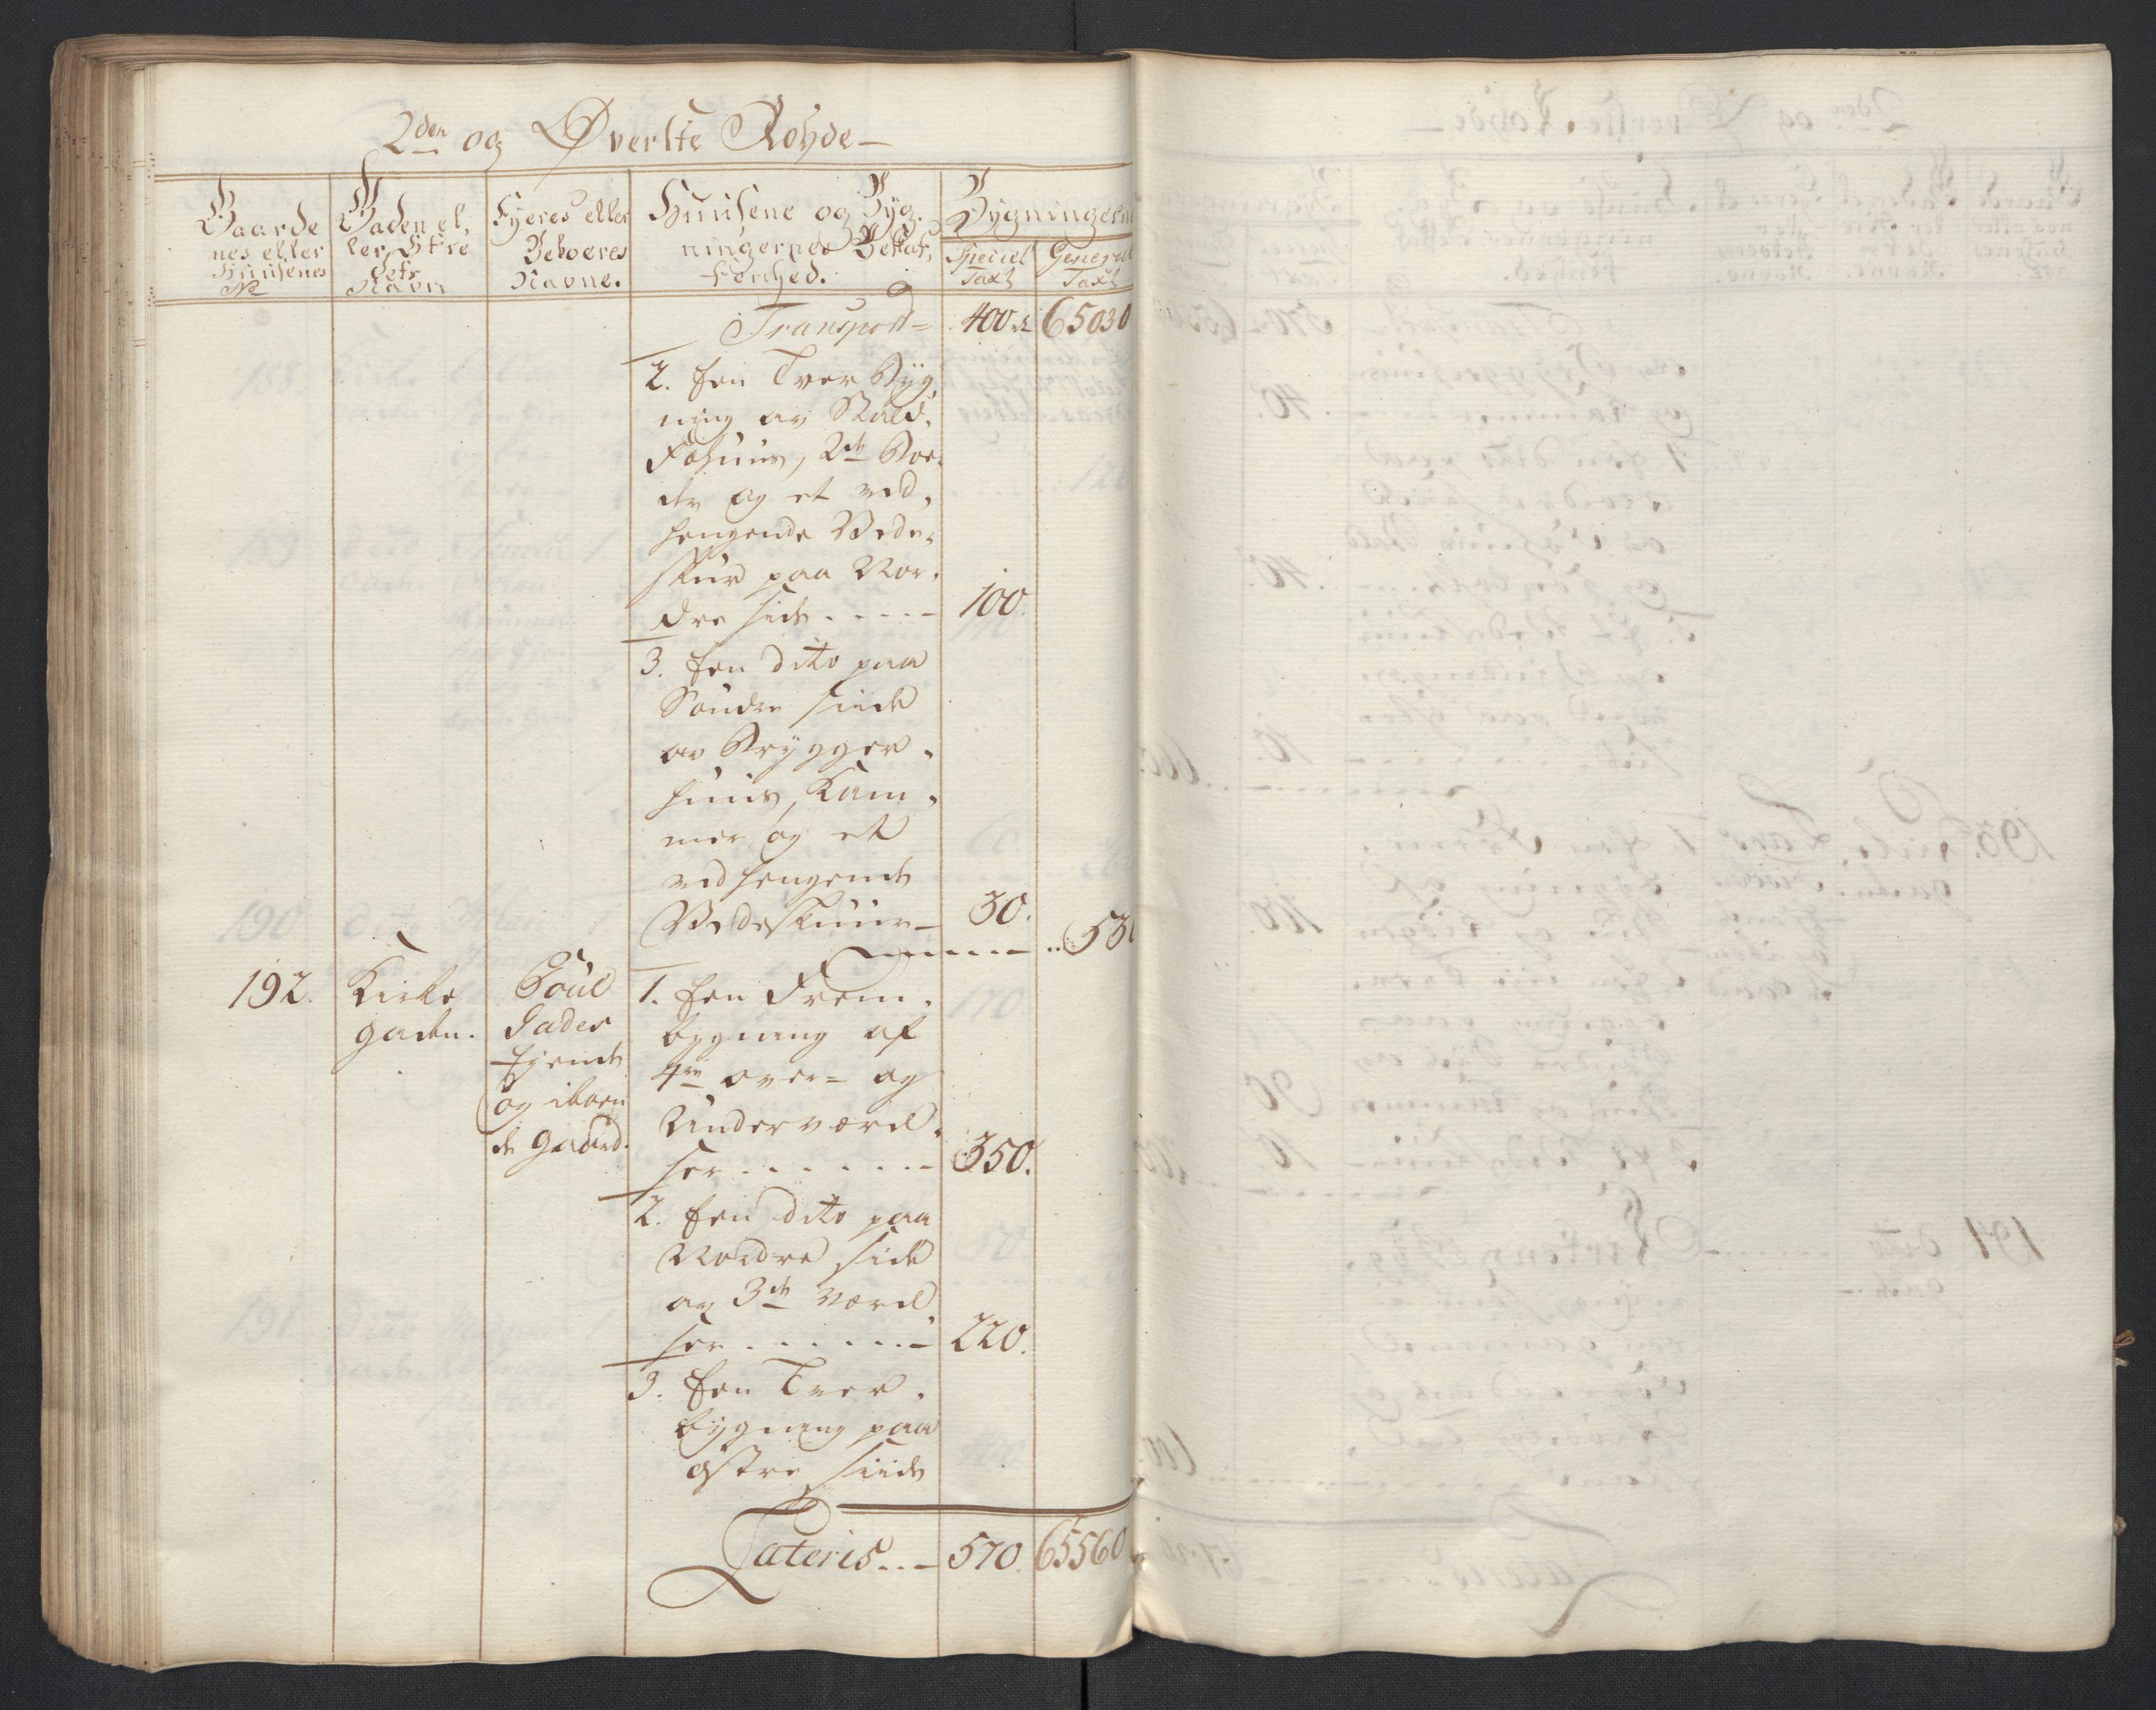 2den og Øverste Rohde
Gaarde
nes eller
Huusenes
No
Gaden el,
ler Stre
dets
Navn
Ejeres eller
Beboeres
Navne.
Huusene og Byg,
ningernes Beskaf,
fenhed.
Bygningern
Speciel
Taxt
General
Taxt
Transport= 400 65030
2. Een Tver Byg,
ning av Stald,
Fæhuus, 2de Boe,
der og et ved,
hengende Vede,
skur paa Nor,
dre side . . . . 100.
3. Een dito paa
Søndre siide
av Brygger,
huus, Kam,
mer og et
vedhengende
Vedeskuur 30.
530
192. Kirke
gaden.
Poul
Gades
Ejende
og iboen
de Gaard.
1. Een Frem,
bygning af
4re over= og
Underværel,
ser . . . . . . 350.
2. Een dito paa
Nordre side
av 3de værel
ser . . . . . . 220.
3. Een Tver,
bygning paa
østre siide
Lateris . . . 570. 65560